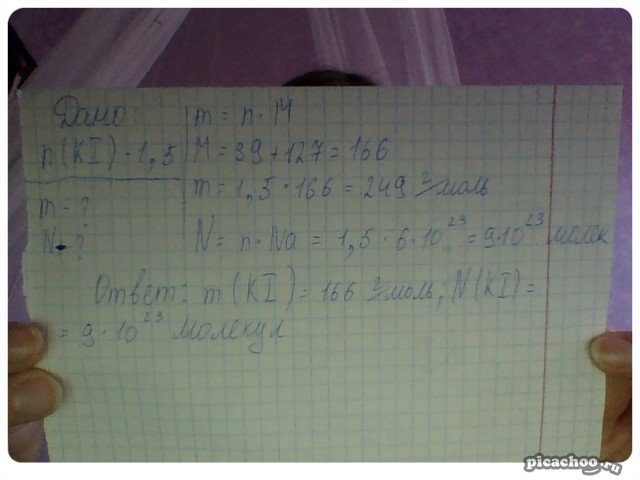 Дано:
n(KI) - 1,5
m - ?
N - ?
m = n · M
M = 39 + 127 = 166
m = 1,5 · 166 = 249 г/моль
N = n · Na = 1,5 · 6 · 10²³ = 9 · 10²³ молек
Ответ: m (KI) = 166 г/моль; N (KI) =
= 9 · 10²³ молекул
picachoo.ru